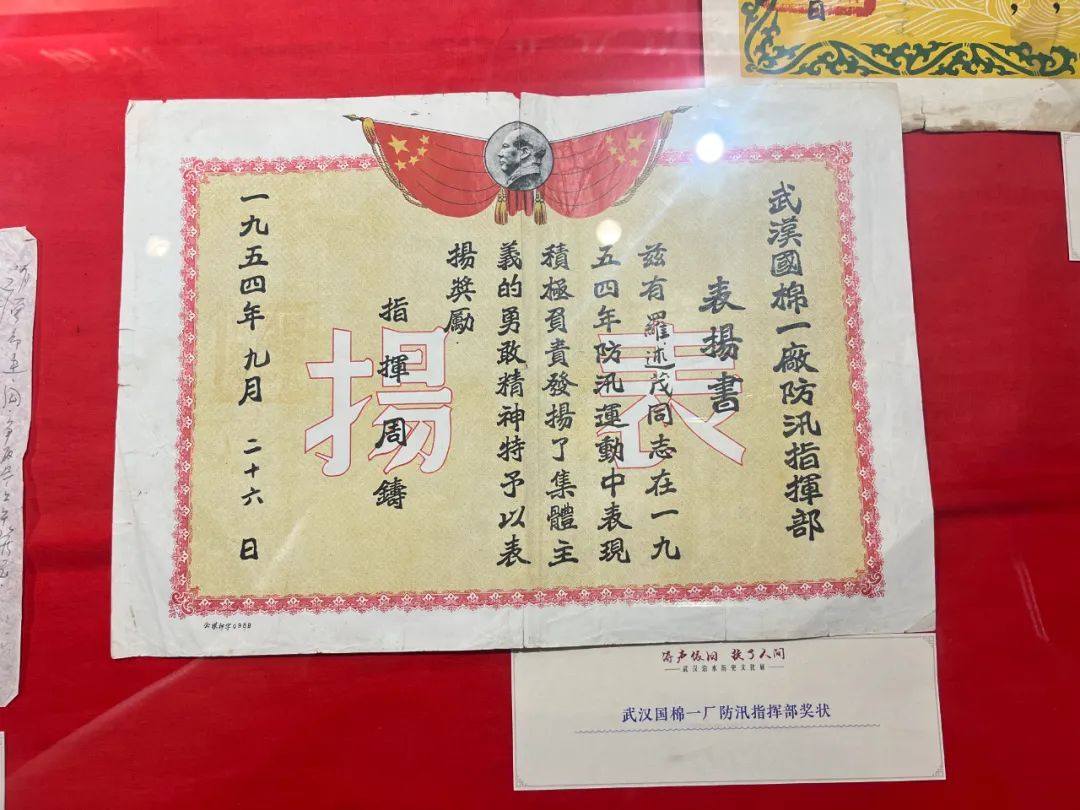 武漢國棉一廠防汛指揮部
表揚書
茲有羅述茂同志在一九
五四年防汛運動中表現
積極負責發揚了集體主
義的勇敢精神特予以表
揚獎勵
指揮周鑄
一九五四年九月二十六日
表揚
濤声依旧 换了人间
武汉治水历史文化展
武汉国棉一厂防汛指挥部奖状
日